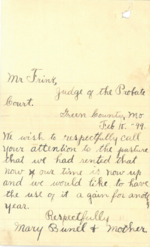 Mr Frink,
Judge of the Probate
Court.
Green County, Mo
Feb 15 - 99.
We wish to respectfully call
your attention to the pasture
that we had rented that
now our time is now up
and we would like to have
the use of it a gain for another
year.
Respectfully
Mary & Mother